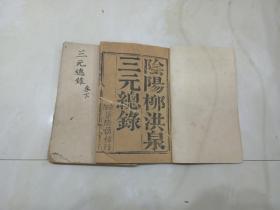 陰陽柳洪泉
三元總錄
三元總錄 卷下